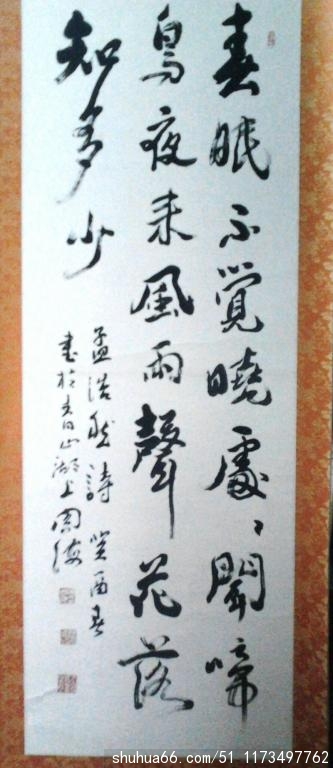 春眠不覺曉處〻聞啼
鳥夜来風雨聲花落
知多少
孟浩然詩 癸酉春
書於青山湖上
shuhua66.com/51 1173497762